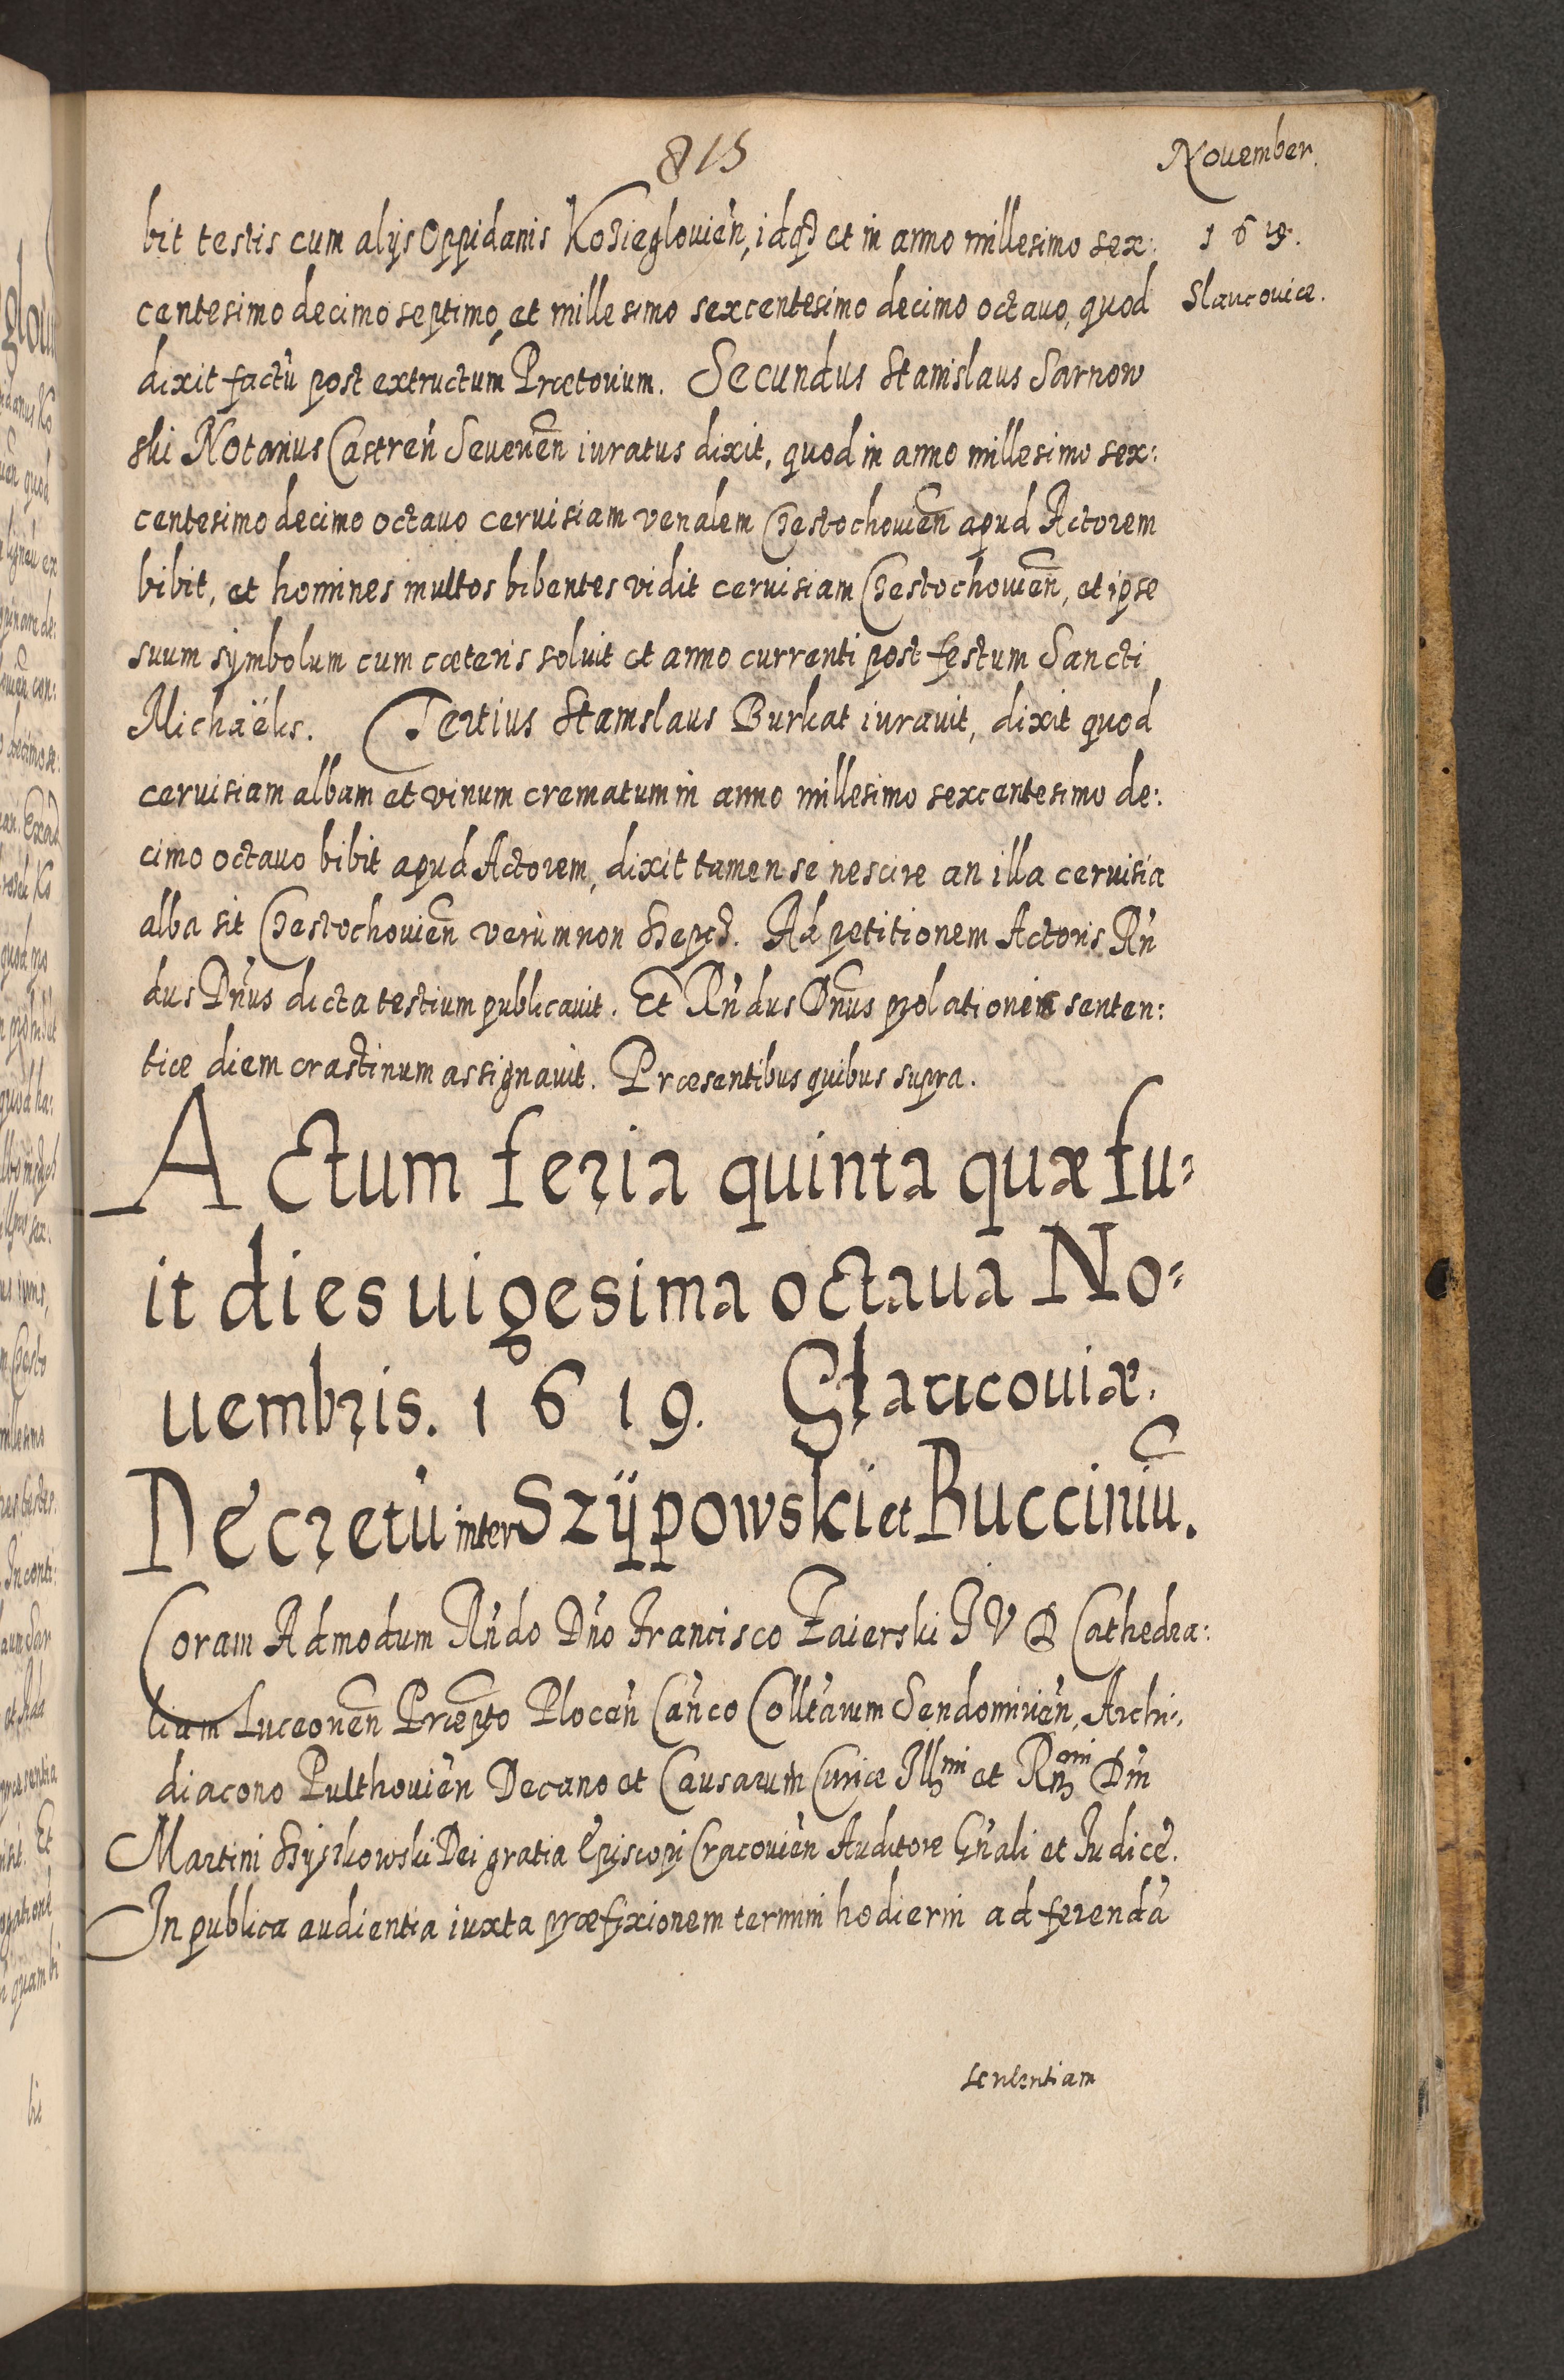 815
November.
1619.
Slavcoviæ.
bit testis cum alijs Oppidanis Kozieglovień, idq3 et in anno millesimo sex:
centesimo decimo septimo, et millesimo sexcentesimo decimo octavo, quod
dixit factũ post extructum Prætorium. Secundus Stanislaus Sarnow
ski Notarius Castreñ Severień iuratus dixit, quod in anno millesimo sex:
centesimo decimo octavo cervisiam venalem Czestochovień apud Actorem
bibit, et homines multos bibentes vidit cervisiam Czestochovień, et ipse
suum symbolum cum cæteris solvit et anno currenti post festum Sancti
Michaëlis. Tertius Stanislaus Burkat iuravit, dixit quod
cervisiam albam et vinum crematum in anno millesimo sexcentesimo de:
cimo octavo bibit apud Actorem, dixit tamen se nescire an illa cervisia
alba sit Czestochovień verùm non Ad petitionem Actoris Rñ
dus Dñus dicta testium publicavit. Et Rñdus Dñus prolationem senten:
tiæ diem crastinum assignavit. Præsentibus quibus supra.
Actum feria quinta quæ fu-
it dies uigesima octaua No-
uembris. 1619. Slaucouiæ.
Decretũ inter Szÿpowski et Bucciniũ.
Coram Admodum Rñdo Dño Francisco Zaierski I V D Cathedra:
lium Luceorień Præpto Ploceń Cañco Colltarum Sendomirień, Archi:
diacono Pulthovień Decano et Causarum Curiæ Illmi et Rmi Dñi
Martini Szyszkowski Dei gratia Episcopi Cracovień Auditore Gñali et Iudice.
In publica audientia iuxta præfixionem termini hodierni ad ferendã
sententiam